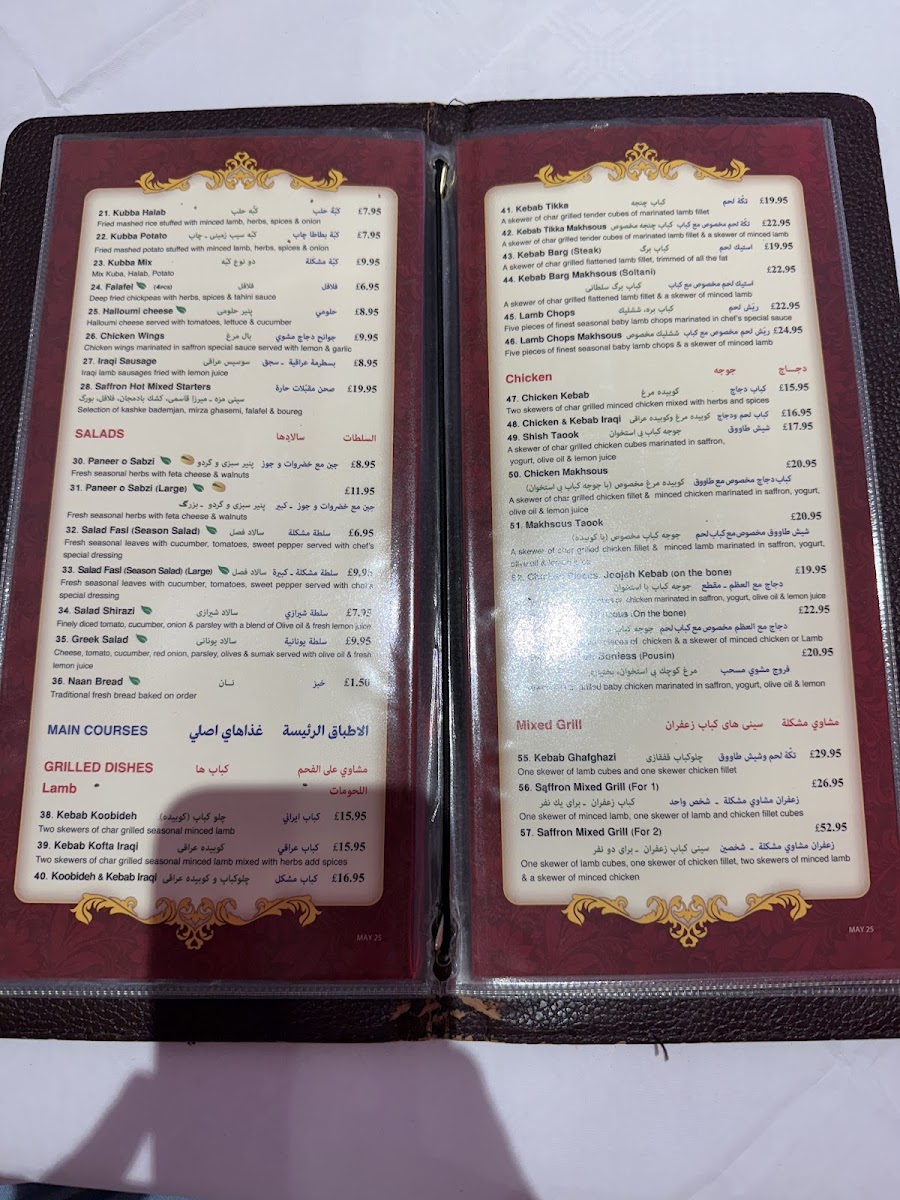 21. Kubba Halab کبّه حلب كبّة حلب £7.95
Fried mashed rice stuffed with minced lamb, herbs, spices & onion
22. Kubba Potato کبّه سیب زمینی ـ چاپ كبّة بطاطا چاپ £7.95
Fried mashed potato stuffed with minced lamb, herbs, spices & onion
23. Kubba Mix دو نوع کبّه كبّة مشكلة £9.95
Mix Kuba, Halab, Potato
24. Falafel (4pcs) فلافل فلافل £6.95
Deep fried chickpeas with herbs, spices & tahini sauce
25. Halloumi cheese پنیر حلومی حلومي £8.95
Halloumi cheese served with tomatoes, lettuce & cucumber
26. Chicken Wings بال مرغ جوانح دجاج مشوي £9.95
Chicken wings marinated in saffron special sauce served with lemon & garlic
27. Iraqi Sausage سوسیس عراقی بسطرمة عراقية ـ سجق £8.95
Iraqi lamb sausages fried with lemon juice
28. Saffron Hot Mixed Starters صحن مقبّلات حارة £19.95
سینی مزه ـ میرزا قاسمی، کشک بادمجان، فلافل، بورگ
Selection of kashke bademjan, mirza ghasemi, falafel & boureg
SALADS سالادها السلطات
30. Paneer o Sabzi پنیر سبزی و گردو جبن مع خضروات و جوز £8.95
Fresh seasonal herbs with feta cheese & walnuts
31. Paneer o Sabzi (Large) £11.95
پنیر سبزی و گردو ـ بزرگ جبن مع خضروات و جوز ـ كبير
Fresh seasonal herbs with feta cheese & walnuts
32. Salad Fasl (Season Salad) سالاد فصل سلطة مشكلة £6.95
Fresh seasonal leaves with cucumber, tomatoes, sweet pepper served with chef's
special dressing
33. Salad Fasl (Season Salad) (Large) سالاد فصل سلطة مشكلة ـ كبيرة £9.95
Fresh seasonal leaves with cucumber, tomatoes, sweet pepper served with chef's
special dressing
34. Salad Shirazi سالاد شیرازی سلطة شيرازي £7.95
Finely diced tomato, cucumber, onion & parsley with a blend of Olive oil & fresh lemon juice
35. Greek Salad سالاد یونانی سلطة يونانية £9.95
Cheese, tomato, cucumber, red onion, parsley, olives & sumak served with olive oil & fresh
lemon juice
36. Naan Bread نـان خبز £1.50
Traditional fresh bread baked on order
MAIN COURSES غذاهاي اصلي الاطباق الرئيسة
GRILLED DISHES کباب ها مشاوي على الفحم
Lamb اللحومات
38. Kebab Koobideh چلو کباب (کوبیده) كباب ايراني £15.95
Two skewers of char grilled seasonal minced lamb
39. Kebab Kofta Iraqi کوبیده عراقی كباب عراقي £15.95
Two skewers of char grilled seasonal minced lamb mixed with herbs add spices
40. Koobideh & Kebab Iraqi چلوکباب و کوبیده عراقی كباب مشكل £16.95
MAY 25
41. Kebab Tikka کباب چنجه تكّة لحم £19.95
A skewer of char grilled tender cubes of marinated lamb fillet
42. Kebab Tikka Makhsous کباب چنجه مخصوص تكّة لحم مخصوص مع كباب £22.95
A skewer of char grilled tender cubes of marinated lamb fillet & a skewer of minced lamb
43. Kebab Barg (Steak) کباب برگ استيك لحم £19.95
A skewer of char grilled flattened lamb fillet, trimmed of all the fat
44. Kebab Barg Makhsous (Soltani) £22.95
کباب برگ سلطانی استيك لحم مخصوص مع كباب
A skewer of char grilled flattened lamb fillet & a skewer of minced lamb
45. Lamb Chops کباب بره، ششلیک ريّش لحم £22.95
Five pieces of finest seasonal baby lamb chops marinated in chef's special sauce
46. Lamb Chops Makhsous ششلیک مخصوص ريّش لحم مخصوص مع كباب £24.95
Five pieces of finest seasonal baby lamb chops & a skewer of minced lamb
Chicken جوجه دجـــاج
47. Chicken Kebab کوبیده مرغ كباب دجاج £15.95
Two skewers of char grilled minced chicken mixed with herbs and spices
48. Chicken & Kebab Iraqi کوبیده مرغ وکوبیده عراقی كباب لحم ودجاج £16.95
49. Shish Taook جوجه کباب بی استخوان شيش طاووق £17.95
A skewer of char grilled chicken cubes marinated in saffron,
yogurt, olive oil & lemon juice
50. Chicken Makhsous £20.95
کوبیده مرغ مخصوص (با جوجه کباب بی استخوان) كباب دجاج مخصوص مع طاووق
A skewer of char grilled chicken fillet & minced chicken marinated in saffron, yogurt,
olive oil & lemon juice
51. Makhsous Taook £20.95
جوجه کباب مخصوص (با کوبیده) شيش طاووق مخصوص مع كباب لحم
A skewer of char grilled chicken fillet & minced lamb marinated in saffron, yogurt,
olive oil & lemon juice
52. Chicken Pieces, Joojah Kebab (on the bone) £19.95
جوجه کباب با استخوان دجاج مع العظم ـ مقطع
chicken marinated in saffron, yogurt, olive oil & lemon juice
(On the bone) £22.95
جوجه کباب دجاج مع العظم مخصوص مع كباب لحم
pieces of chicken & a skewer of minced chicken or Lamb
Bonless (Pousin) £20.95
مرغ کوچک بی استخوان، فروج مشوي مسحب
grilled baby chicken marinated in saffron, yogurt, olive oil & lemon
Mixed Grill سینی های کباب زعفران مشاوي مشكلة
55. Kebab Ghafghazi چلوکباب قفقازی تكّة لحم وشيش طاووق £29.95
One skewer of lamb cubes and one skewer chicken fillet
56. Saffron Mixed Grill (For 1) £26.95
کباب زعفران ـ برای یک نفر زعفران مشاوي مشكلة ـ شخص واحد
One skewer of minced lamb, one skewer of lamb and chicken fillet cubes
57. Saffron Mixed Grill (For 2) £52.95
سینی کباب زعفران ـ برای دو نفر زعفران مشاوي مشكلة ـ شخصين
One skewer of lamb cubes, one skewer of chicken fillet, two skewers of minced lamb
& a skewer of minced chicken
MAY 25